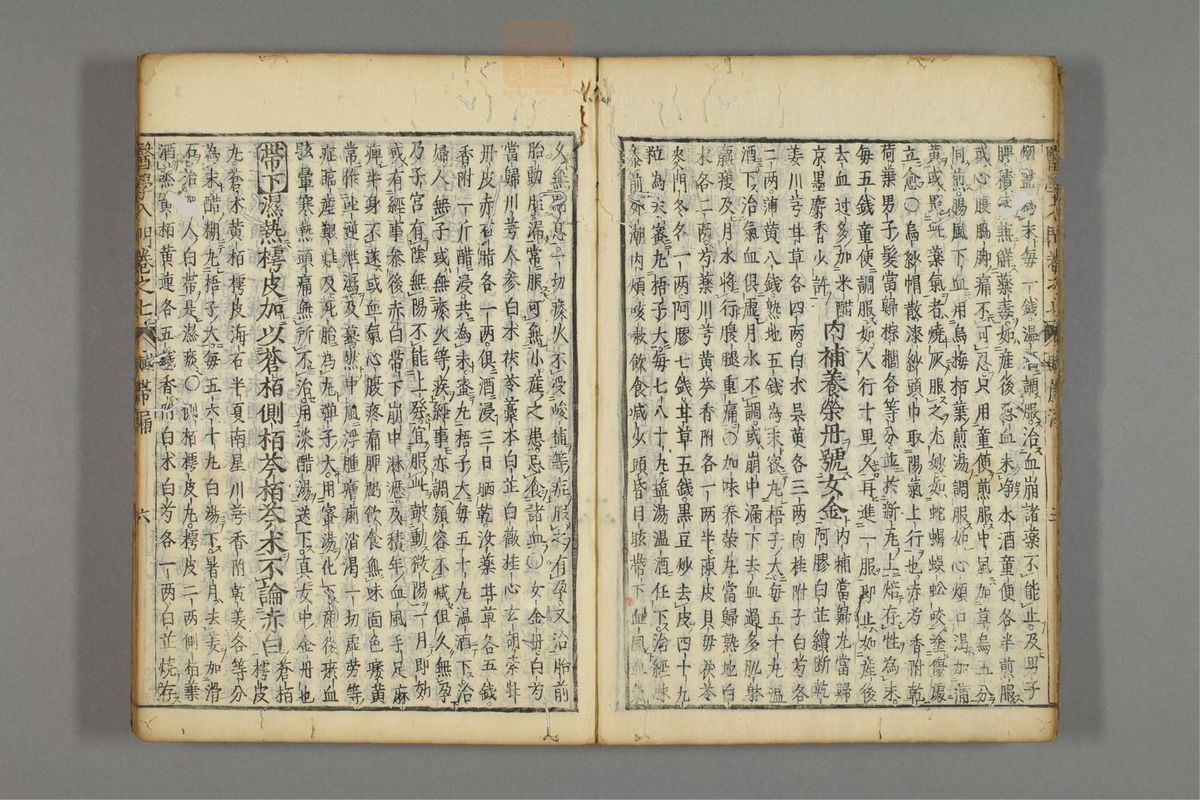 烟盡為末每一錢溫酒調服治血崩諸藥不能止及男子
脾積無鮮藥毒如產後惡血未淨水酒童便各半煎服
或心腰脇脚痛不可忍只用童便煎服中風加草烏五分
同煎腸風下血用烏梅栢葉煎湯調服如心煩口渴加蒲
黃或思此藥氣者燒灰服之尤妙如蛇蝎蜈蚣咬塗傷處
立愈〇烏紗帽散漆紗頭巾取陽氣上行也赤芍香附乾
荷葉男子髮當歸棕櫚各等分並於新瓦上焙存性為末
每五錢童便調服如人行十里久再進一服即止如產後
去血过多加米醋
京墨麝香少許 內補養榮丹號女金 內補當歸丸當歸
阿膠白芷續斷乾
姜川芎甘草各四兩白朮吳萸各三兩肉桂附子白芍各
二兩蒲黃八錢熟地五錢為末蜜丸梧子大每五十丸溫
酒下治氣血俱虛月水不調或崩中漏下去血過多肌躰
羸瘦及月水將行腰腿重痛〇加味養榮丸當歸熟地白
朮各二兩芍藥川芎黃芩香附各一兩半陳皮貝母茯苓
麥門冬各一兩阿膠七錢甘草五錢黑豆炒去皮四十九
粒為末蜜丸梧子大每七八十丸塩湯溫酒任下治經脉
參前外潮內煩咳嗽飲食減少頭昏目眩帶下血風血氣
久無嗣息一切痰火不受峻補等症服之有孕又治胎前
胎動胎漏常服可無小產之患忌食諸血〇女金丹白芍
當歸川芎人參白朮茯苓藁本白芷白薇桂心玄胡索牡
丹皮赤石脂各一兩俱酒浸三日晒乾汝藥甘草各五錢
香附一斤醋浸共為末蜜丸梧子大每五十丸溫酒下治
婦人無子或無痰火等疾經事亦調顏容不減但久無孕
乃子宮有陰無陽不能上發宜服此皷動微陽一月即効
或有經事參後赤白帶下崩中淋瀝及積年血風手足麻
痺半身不遂或血氣心腹疼痛脾胃飲食無味面色痿黃
常作吐逆無憑及暮然中風浮腫癲癇消渴一切虛勞等
症臨產艱難及死胎為九彈子大用蜜湯化下產後痰血
眩暈寒熱頭痛無所不治用淡醋湯送下真女中金丹也
帶下濕熱樗皮加以蒼栢側栢芩栢芩朮不論赤白 蒼栢
樗皮
丸蒼朮黃栢樗皮海石半夏南星川芎香附乾姜各等分
為末醋糊丸梧子大每五六十丸白湯下暑月去姜加滑
石治人白帶是濕痰〇側栢樗皮丸樗皮二兩側栢葉
酒黃栢黃連各五錢香附白朮白芍各一兩白芷燒存
醫學入門卷之七 帶漏 六